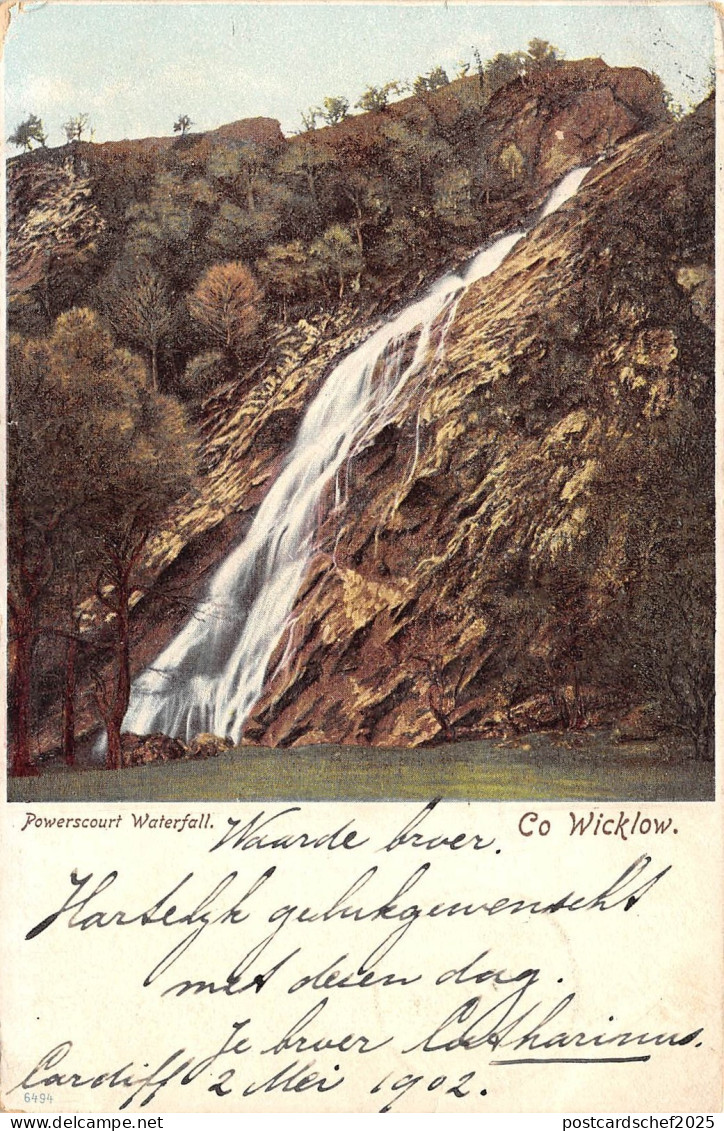 Powerscourt Waterfall.
Co Wicklow.
Waarde broer.
Hartelyk gelukgewenscht
met desen dag.
Je broer Catharinus.
Cardiff 2 Mei 1902.
6494
postcardschef2025